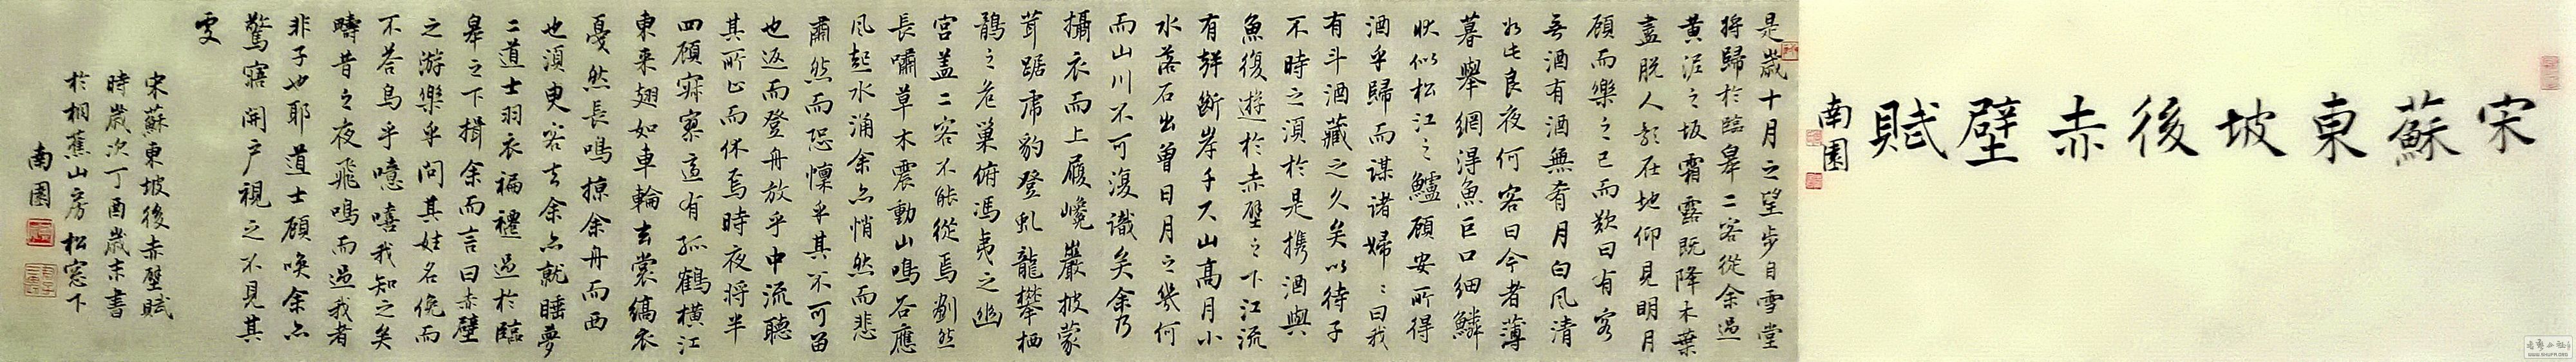 宋蘇東坡後赤壁賦
南園
是歲十月之望步自雪堂
將歸於臨皋二客從余過
黃泥之坂霜露既降木葉
盡脫人影在地仰見明月
顧而樂之已而歎曰有客
無酒有酒無肴月白風清
如此良夜何客曰今者薄
暮舉網得魚巨口細鱗
狀似松江之鱸顧安所得
酒乎歸而謀諸婦〻曰我
有斗酒藏之久矣以待子
不時之須於是携酒與
魚復遊於赤壁之下江流
有聲斷岸千尺山高月小
水落石出曾日月之幾何
而山川不可復識矣余乃
攝衣而上履巉巖披蒙
茸踞虎豹登虬龍攀栖
鶻之危巢俯馮夷之幽
宮蓋二客不能從焉劃然
長嘯草木震動山鳴谷應
風起水涌余亦悄然而悲
肅然而恐懍乎其不可留
也返而登舟放乎中流聽
其所止而休焉時夜將半
四顧寂寥適有孤鶴橫江
東來翅如車輪玄裳縞衣
戛然長鳴掠余舟而西
也須臾客去余亦就睡夢
二道士羽衣褊襹過於臨
皋之下揖余而言曰赤壁
之游樂乎問其姓名俛而
不答烏乎噫嘻我知之矣
疇昔之夜飛鳴而過我者
非子也耶道士顧喚余亦
驚寤開户視之不見其
處
宋蘇東坡後赤壁賦
時歲次丁酉歲末書
於相蕉山房松窓下
南園